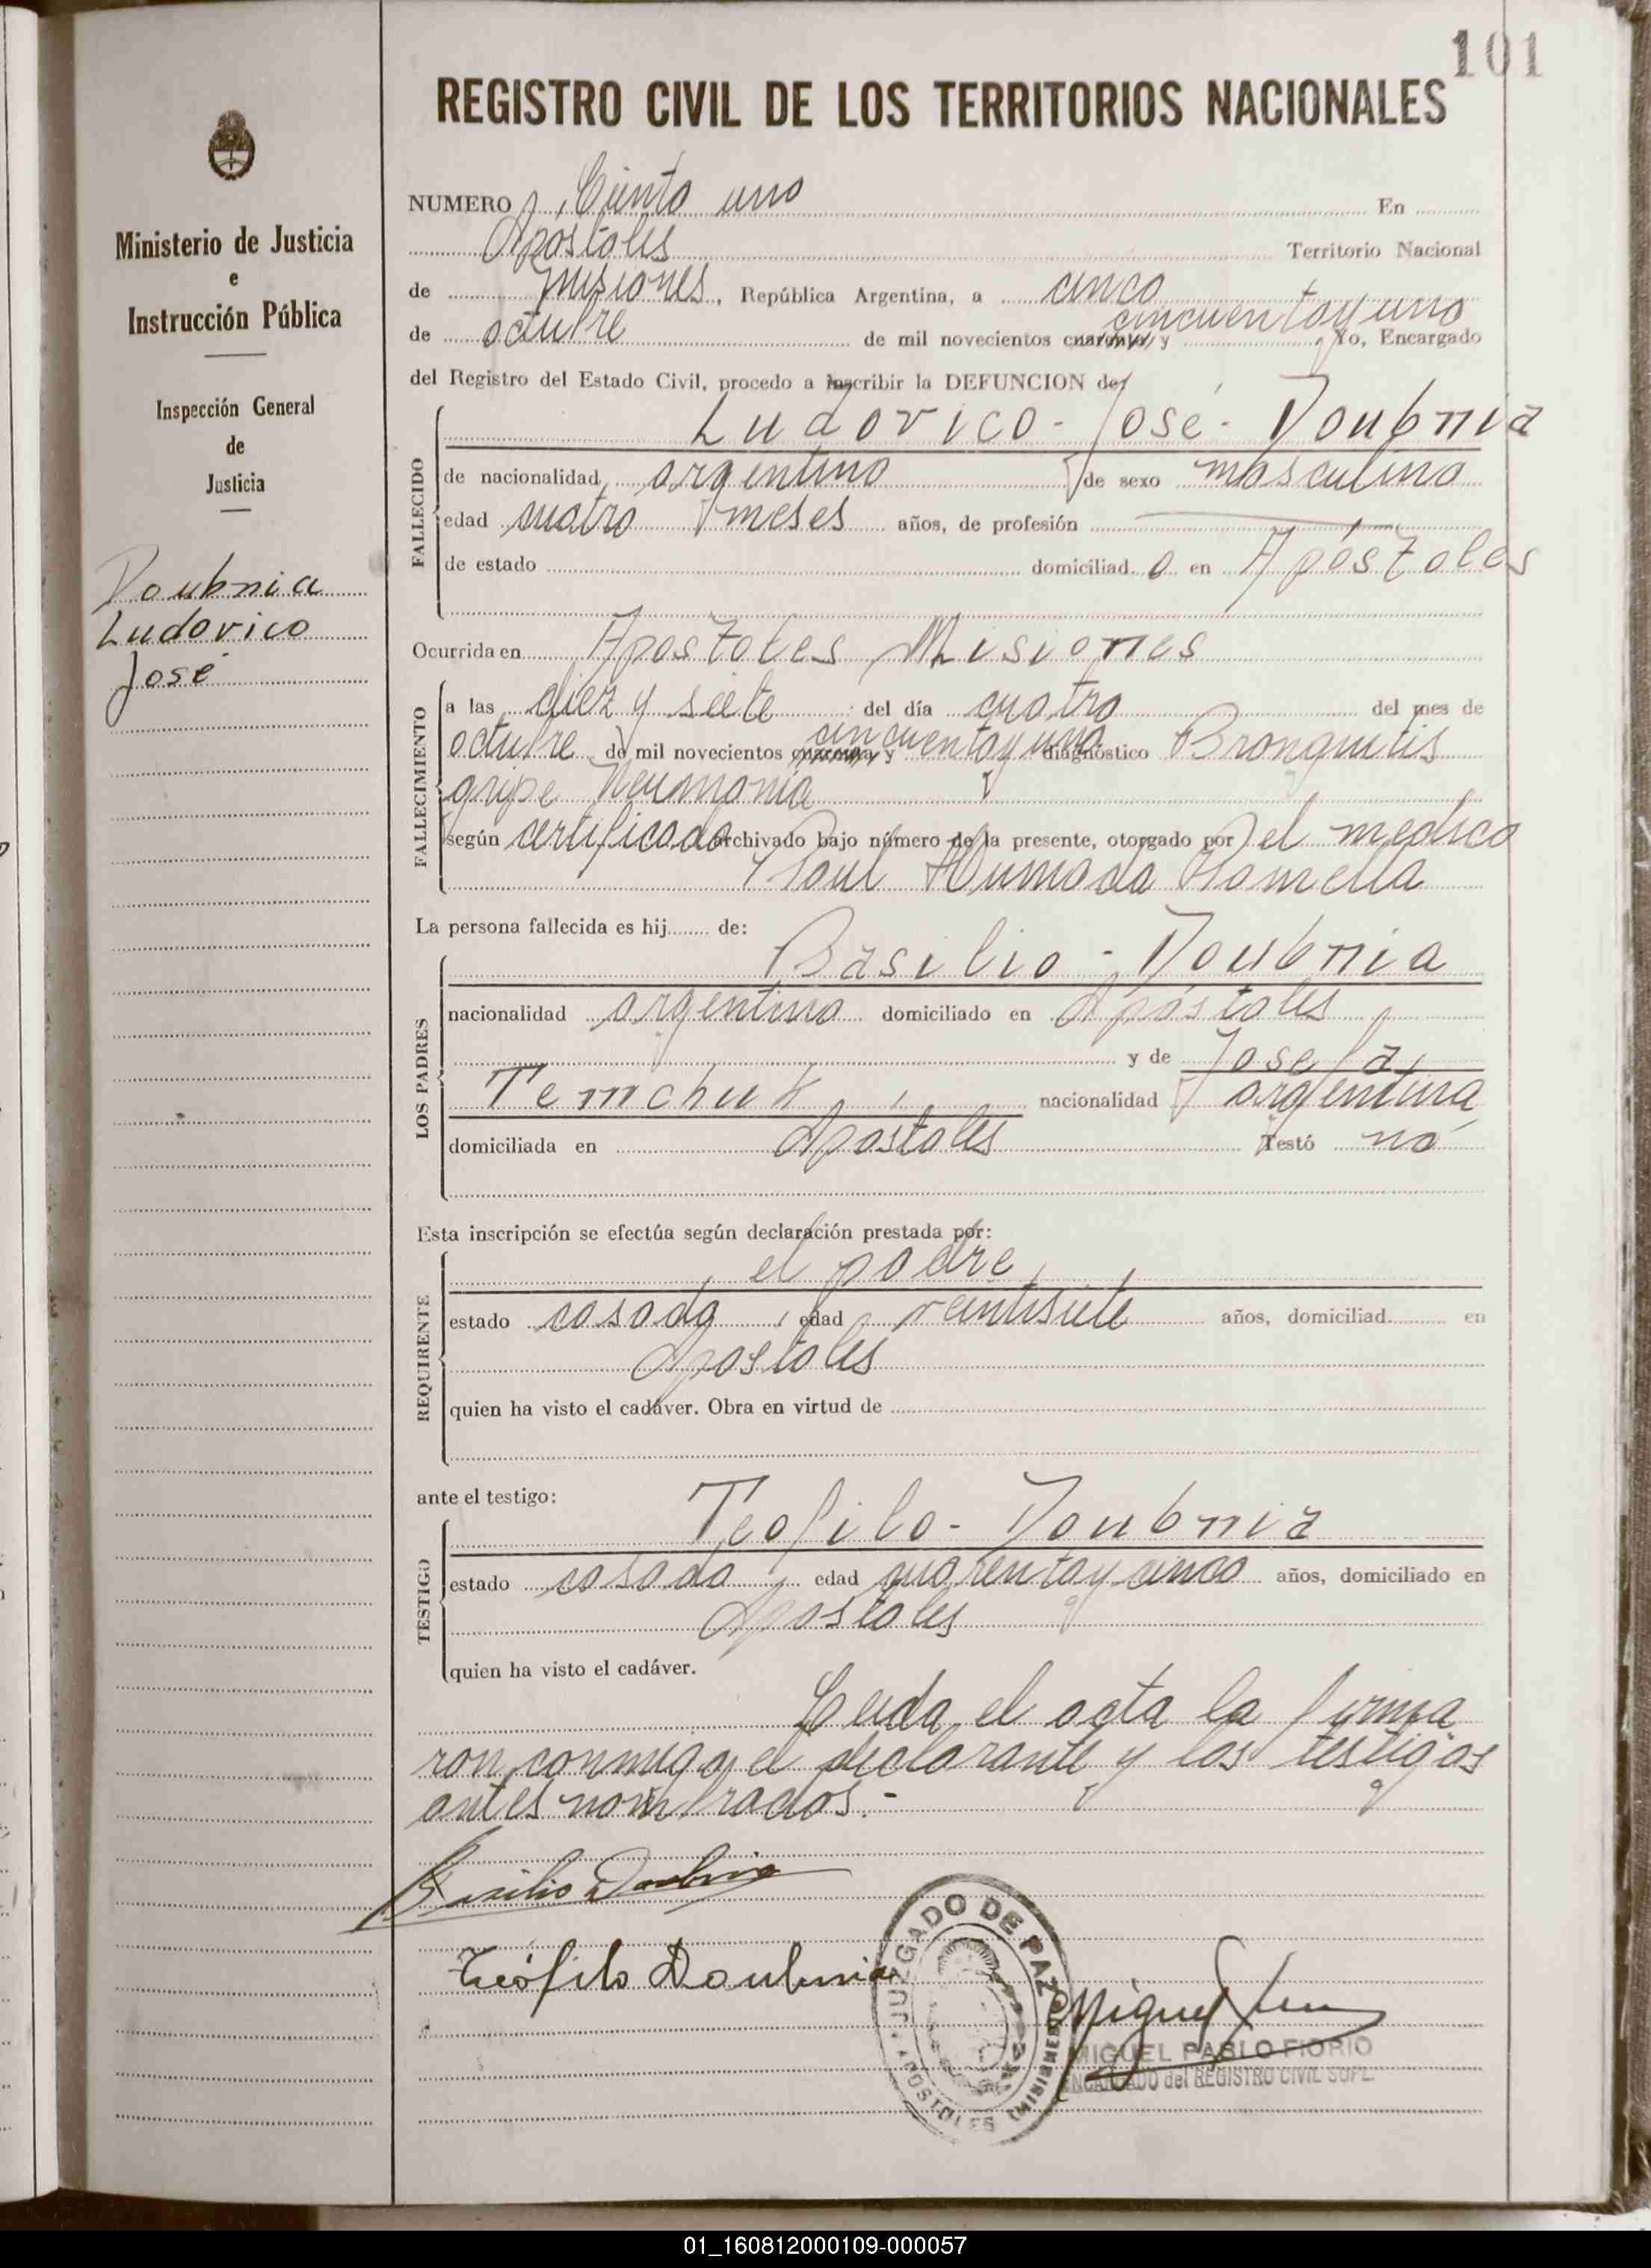 101
REGISTRO CIVIL DE LOS TERRITORIOS NACIONALES
Ministerio de Justicia
e
Instrucción Pública
Inspección General
de
Justicia
Doubnia
Ludovico
José
NUMERO Ciento uno En
Apostoles Territorio Nacional
de Misiones, República Argentina, a cinco
cincuenta y uno
de octubre de mil novecientos cuarenta y Yo, Encargado
del Registro del Estado Civil, procedo a inscribir la DEFUNCION de
FALLECIDO
Ludovico - José - Doubnia
de nacionalidad argentino de sexo masculino
edad cuatro meses años, de profesión
de estado domiciliado en Apóstoles
Ocurrida en Apostoles Misiones
FALLECIMIENTO
a las diez y siete del día cuatro del mes de
cincuenta y uno
octubre de mil novecientos cuarenta y diagnóstico Bronquitis
gripe Neumonia
según certificado archivado bajo número de la presente, otorgado por el medico
Raul Ahumada Ramella
La persona fallecida es hij de:
LOS PADRES
Basilio - Doubnia
nacionalidad argentino domiciliado en Apóstoles
y de Josefa
Temchuk nacionalidad argentina
domiciliada en Apostoles Testó no
Esta inscripción se efectúa según declaración prestada por:
REQUIRENTE
el padre
estado casado, edad veintisiete años, domiciliad en
Apostoles
quien ha visto el cadáver. Obra en virtud de
ante el testigo:
TESTIGO
Teofilo - Doubnia
estado casado edad cuarenta y cinco años, domiciliado en
Apostoles
quien ha visto el cadáver.
Leida el acta la firma
ron conmigo el declarante y los testigos
antes nombrados.-
Basilio Doubnia
Teófilo Doubnia
JUZGADO DE PAZ
APOSTOLES (MISIONES)
Miguel
MIGUEL PABLO FIORIO
ENCARGADO del REGISTRO CIVIL SUPL.
01_160812000109-000057